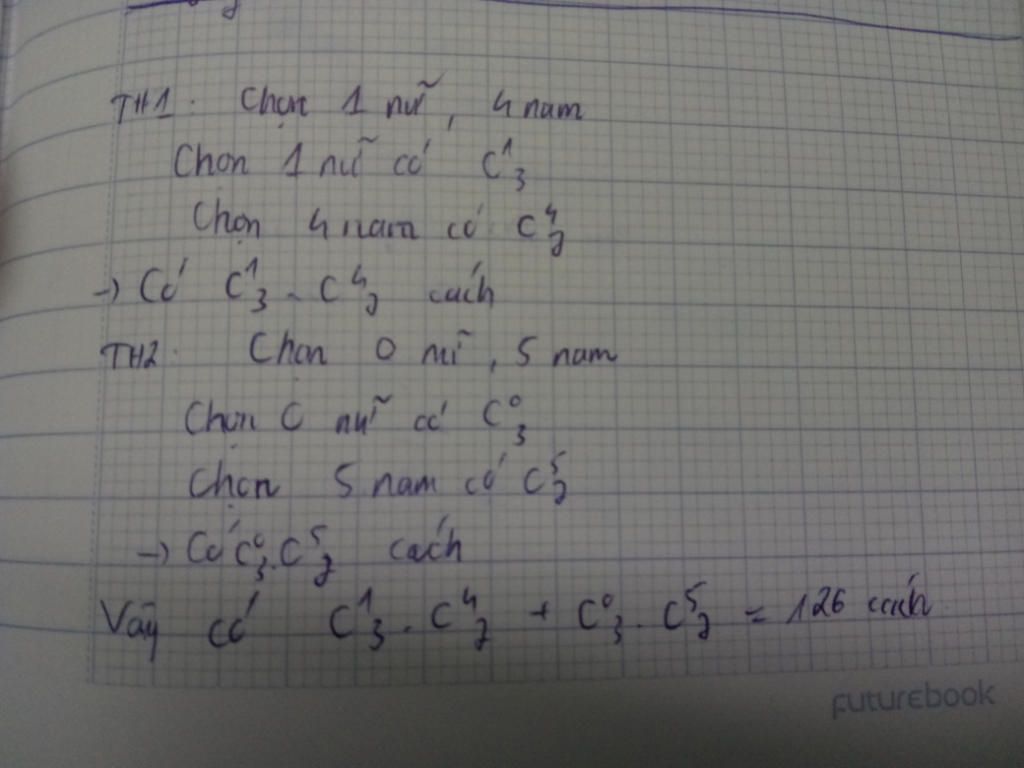 TH1: Chọn 1 nữ, 4 nam
Chọn 1 nữ có C¹₃
Chọn 4 nam có C⁴₇
→ Có C¹₃ . C⁴₇ cách
TH2: Chọn 0 nữ, 5 nam
Chọn 0 nữ có C⁰₃
Chọn 5 nam có C⁵₇
→ Có C⁰₃ . C⁵₇ cách
Vậy có C¹₃ . C⁴₇ + C⁰₃ . C⁵₇ = 126 cách
FUTUREBOOK